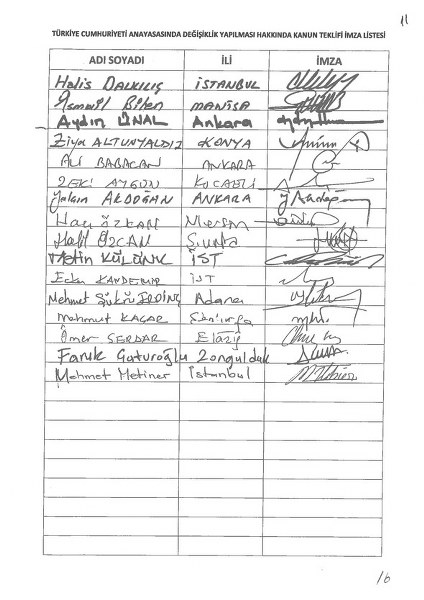 11
TÜRKİYE CUMHURİYETİ ANAYASASINDA DEĞİŞİKLİK YAPILMASI HAKKINDA KANUN TEKLİFİ İMZA LİSTESİ
ADI SOYADI İLİ İMZA
Halis DALKILIÇ İSTANBUL
İsmail Bilen MANİSA
Aydın ÜNAL Ankara
Ziya ALTUNYALDIZ KONYA
Ali BABACAN ANKARA
ZEKİ AYGÜN KOCAELİ
Yalçın AKDOĞAN ANKARA
Hacı ÖZKAN Mersin
Halil ÖZCAN Ş.urfa
Metin KÜLÜNK İST
KANDEMİR İST
Mehmet Şükrü ERDİNÇ Adana
Mahmut KAÇAR Şanlıurfa
Ömer SERDAR Elazığ
Faruk Çaturoğlu Zonguldak
Mehmet Metiner İstanbul
16